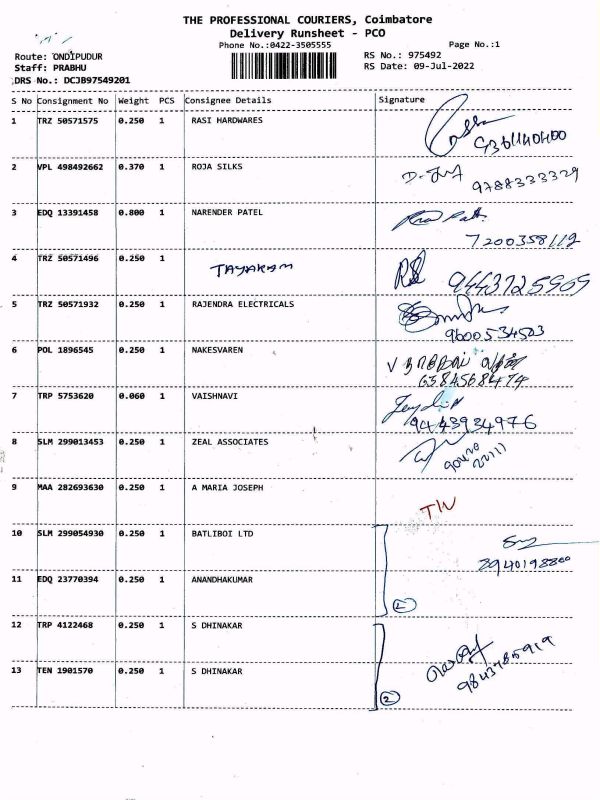 THE PROFESSIONAL COURIERS, Coimbatore
Delivery Runsheet - PCO
Phone No.:0422-3505555
Page No.:1
Route: ONDIPUDUR
RS No.: 975492
Staff: PRABHU
RS Date: 09-Jul-2022
DRS No.: DCJB97549201
S No Consignment No Weight PCS Consignee Details Signature
1 TRZ 50571575 0.250 1 RASI HARDWARES
2 VPL 498492662 0.370 1 ROJA SILKS
9788333329
3 EDQ 13391458 0.800 1 NARENDER PATEL
7200358112
4 TRZ 50571496 0.250 1
TAYAKAM
9443725969
5 TRZ 50571932 0.250 1 RAJENDRA ELECTRICALS
9600534503
6 POL 1896545 0.250 1 NAKESVAREN
6384568474
7 TRP 5753620 0.060 1 VAISHNAVI
9443934976
8 SLM 299013453 0.250 1 ZEAL ASSOCIATES
90470
22111
9 MAA 282693630 0.250 1 A MARIA JOSEPH
10 SLM 299054930 0.250 1 BATLIBOI LTD
11 EDQ 23770394 0.250 1 ANANDHAKUMAR
12 TRP 4122468 0.250 1 S DHINAKAR
13 TEN 1901570 0.250 1 S DHINAKAR
2